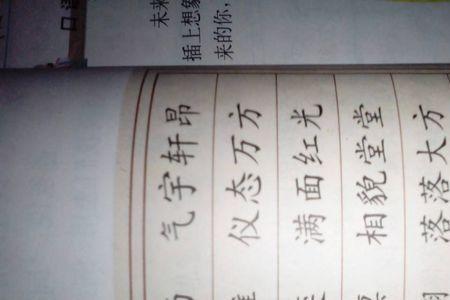 口语
未来
插上想象
来的你，
气宇轩昂
仪态万方
满面红光
相貌堂堂
落落大方